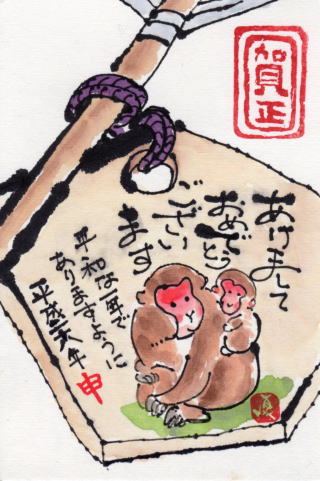 賀正
あけまして
おめでとう
ござい
ます
平和な一年で
ありますように
平成二八年
申